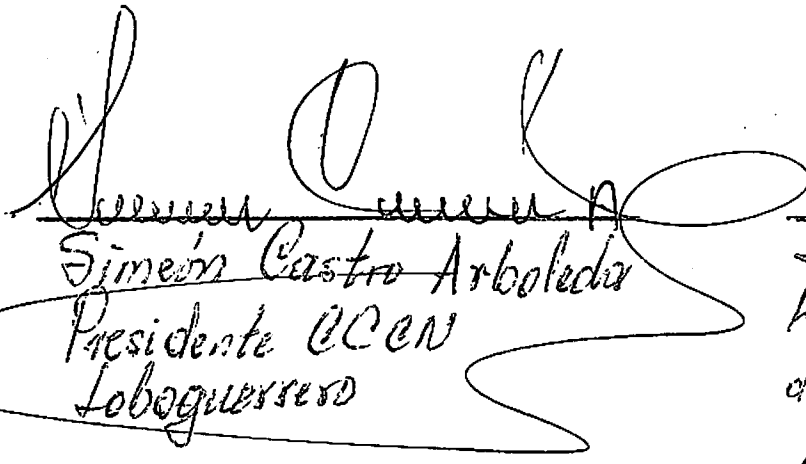 Simeón Castro Arboleda
Presidente CCCN
Loboguerrero